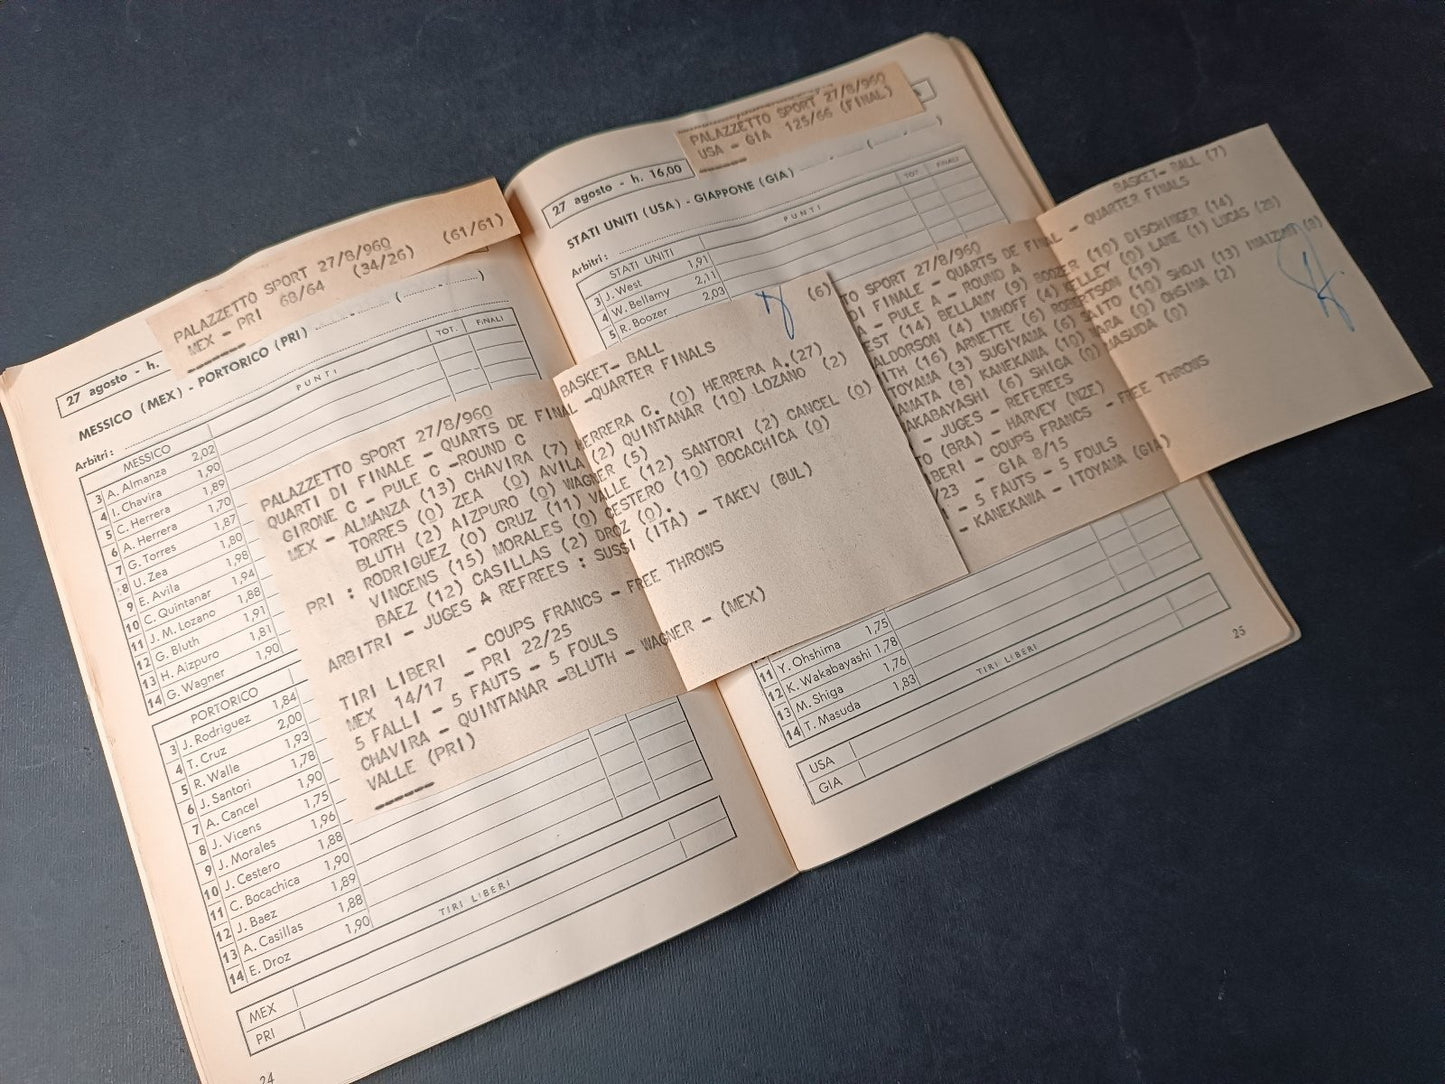 PALAZZETTO SPORT 27/8/960 (61/61)
MEX - PRI 68/64 (34/26)
27 agosto - h.
MESSICO (MEX) - PORTORICO (PRI)
Arbitri:
MESSICO PUNTI TOT. FINALI
3 A. Almanza 2,02
4 I. Chavira 1,90
5 C. Herrera 1,89
6 A. Herrera 1,70
7 G. Torres 1,87
8 U. Zea 1,80
9 E. Avila 1,98
10 C. Quintanar 1,94
11 J. M. Lozano 1,88
12 G. Bluth 1,91
13 H. Aizpuro 1,81
14 G. Wagner 1,90
PORTORICO
3 J. Rodriguez 1,84
4 T. Cruz 2,00
5 R. Walle 1,93
6 J. Santori 1,78
7 A. Cancel 1,90
8 J. Vicens 1,75
9 J. Morales 1,96
10 J. Cestero 1,88
11 C. Bocachica 1,90
12 J. Baez 1,89
13 A. Casillas 1,88
14 E. Droz 1,90
TIRI LIBERI
MEX
PRI
24
(6)
PALAZZETTO SPORT 27/8/960 BASKET- BALL
QUARTI DI FINALE - QUARTS DE FINAL -QUARTER FINALS
GIRONE C - PULE C -ROUND C
MEX - ALMANZA (13) CHAVIRA (7) HERRERA C. (0) HERRERA A.(27)
TORRES (0) ZEA (0) AVILA (2) QUINTANAR (10) LOZANO (2)
BLUTH (2) AIZPURO (0) WAGNER (5)
PRI : RODRIGUEZ (0) CRUZ (11) VALLE (12) SANTORI (2) CANCEL (0)
VINCENS (15) MORALES (0) CESTERO (10) BOCACHICA (0)
BAEZ (12) CASILLAS (2) DROZ (0).
ARBITRI - JUGES A REFREES : SUSSI (ITA) - TAKEV (BUL)
TIRI LIBERI - COUPS FRANCS - FREE THROWS
MEX 14/17 - PRI 22/25
5 FALLI - 5 FAUTS - 5 FOULS
CHAVIRA - QUINTANAR -BLUTH - WAGNER - (MEX)
VALLE (PRI)
PALAZZETTO SPORT 27/8/960
USA - GIA 125/66 (FINAL)
27 agosto - h. 16,00
STATI UNITI (USA) - GIAPPONE (GIA)
Arbitri:
STATI UNITI PUNTI TOT. FINALI
3 J. West 1,91
4 W. Bellamy 2,11
5 R. Boozer 2,03
TO SPORT 27/8/960 BASKET- BALL (7)
DI FINALE - QUARTS DE FINAL - QUARTER FINALS
A - PULE A - ROUND A
EST (14) BELLAMY (9) BOOZER (10) DISCHINGER (14)
ALDORSON (4) IMHOFF (4) KELLEY (0) LANE (1) LUCAS (28)
ITH (16) ARNETTE (6) ROBERTSON (19)
TOYAMA (3) SUGIYAMA (6) SAITO (10) SHOJI (13) IMAIZUMI (8)
AMATA (8) KANEKAWA (10) NARA (0) OHSIMA (2)
AKABAYASHI (6) SHIGA (0) MASUDA (0)
- JUGES - REFEREES
TO (BRA) - HARVEY (NZE)
IBERI - COUPS FRANCS - FREE THROWS
/23 - GIA 8/15
- 5 FAUTS - 5 FOULS
- KANEKAWA - ITOYAMA (GIA)
11 Y. Ohshima 1,75
12 K. Wakabayashi 1,78
13 M. Shiga 1,76
14 T. Masuda 1,83
TIRI LIBERI
USA
GIA
25